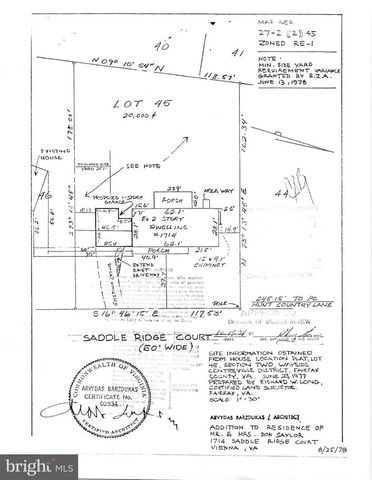 MAP REF
27-2 ((2)) 45
ZONED RE-1
NOTE:
MIN. SIDE YARD
REQUIREMENT VARIANCE
GRANTED BY B.Z.A.
JUNE 13, 1978
40
41
N 09° 10' 54" N
118.57'
LOT 45
20,000 ⌀
178.00'
162.34'
EXISTING
HOUSE
SEE NOTE
46
44
PROPOSED 1-STORY
GARAGE
PORCH
AREA WAY
62.1'
EX 2 STORY
DWELLING
#1714
62.1'
14.9'
PORCH
40.9'
21.5'
12" x 9.1'
CHIMNEY
EXTEND
EXIST
DRIVEWAY
245.15' TO PC
HUNT COUNTRY LANE
POLE
S 16° 46' 15" E
117.53'
SADDLE RIDGE COURT
(50' WIDE)
DIVISION OF DESIGN REVIEW
SITE INFORMATION OBTAINED
FROM HOUSE LOCATION PLAT, LOT
45, SECTION TWO, WAYSIDE
CENTREVILLE DISTRICT, FAIRFAX
COUNTY, VA. JUNE 22, 1977
PREPARED BY RICHARD W. LONG,
CERTIFIED LAND SURVEYOR
FAIRFAX, VA.
SCALE 1" - 30'
COMMONWEALTH OF VIRGINIA
ARVYDAS BARZDUKAS
CERTIFICATE No.
02934
CERTIFIED ARCHITECT
ARVYDAS BARZDUKAS [ARCHITECT]
ADDITION TO RESIDENCE OF
MR. & MRS. DON SAYLOR
1714 SADDLE RIDGE COURT
VIENNA, VA
8/25/78
bright MLS